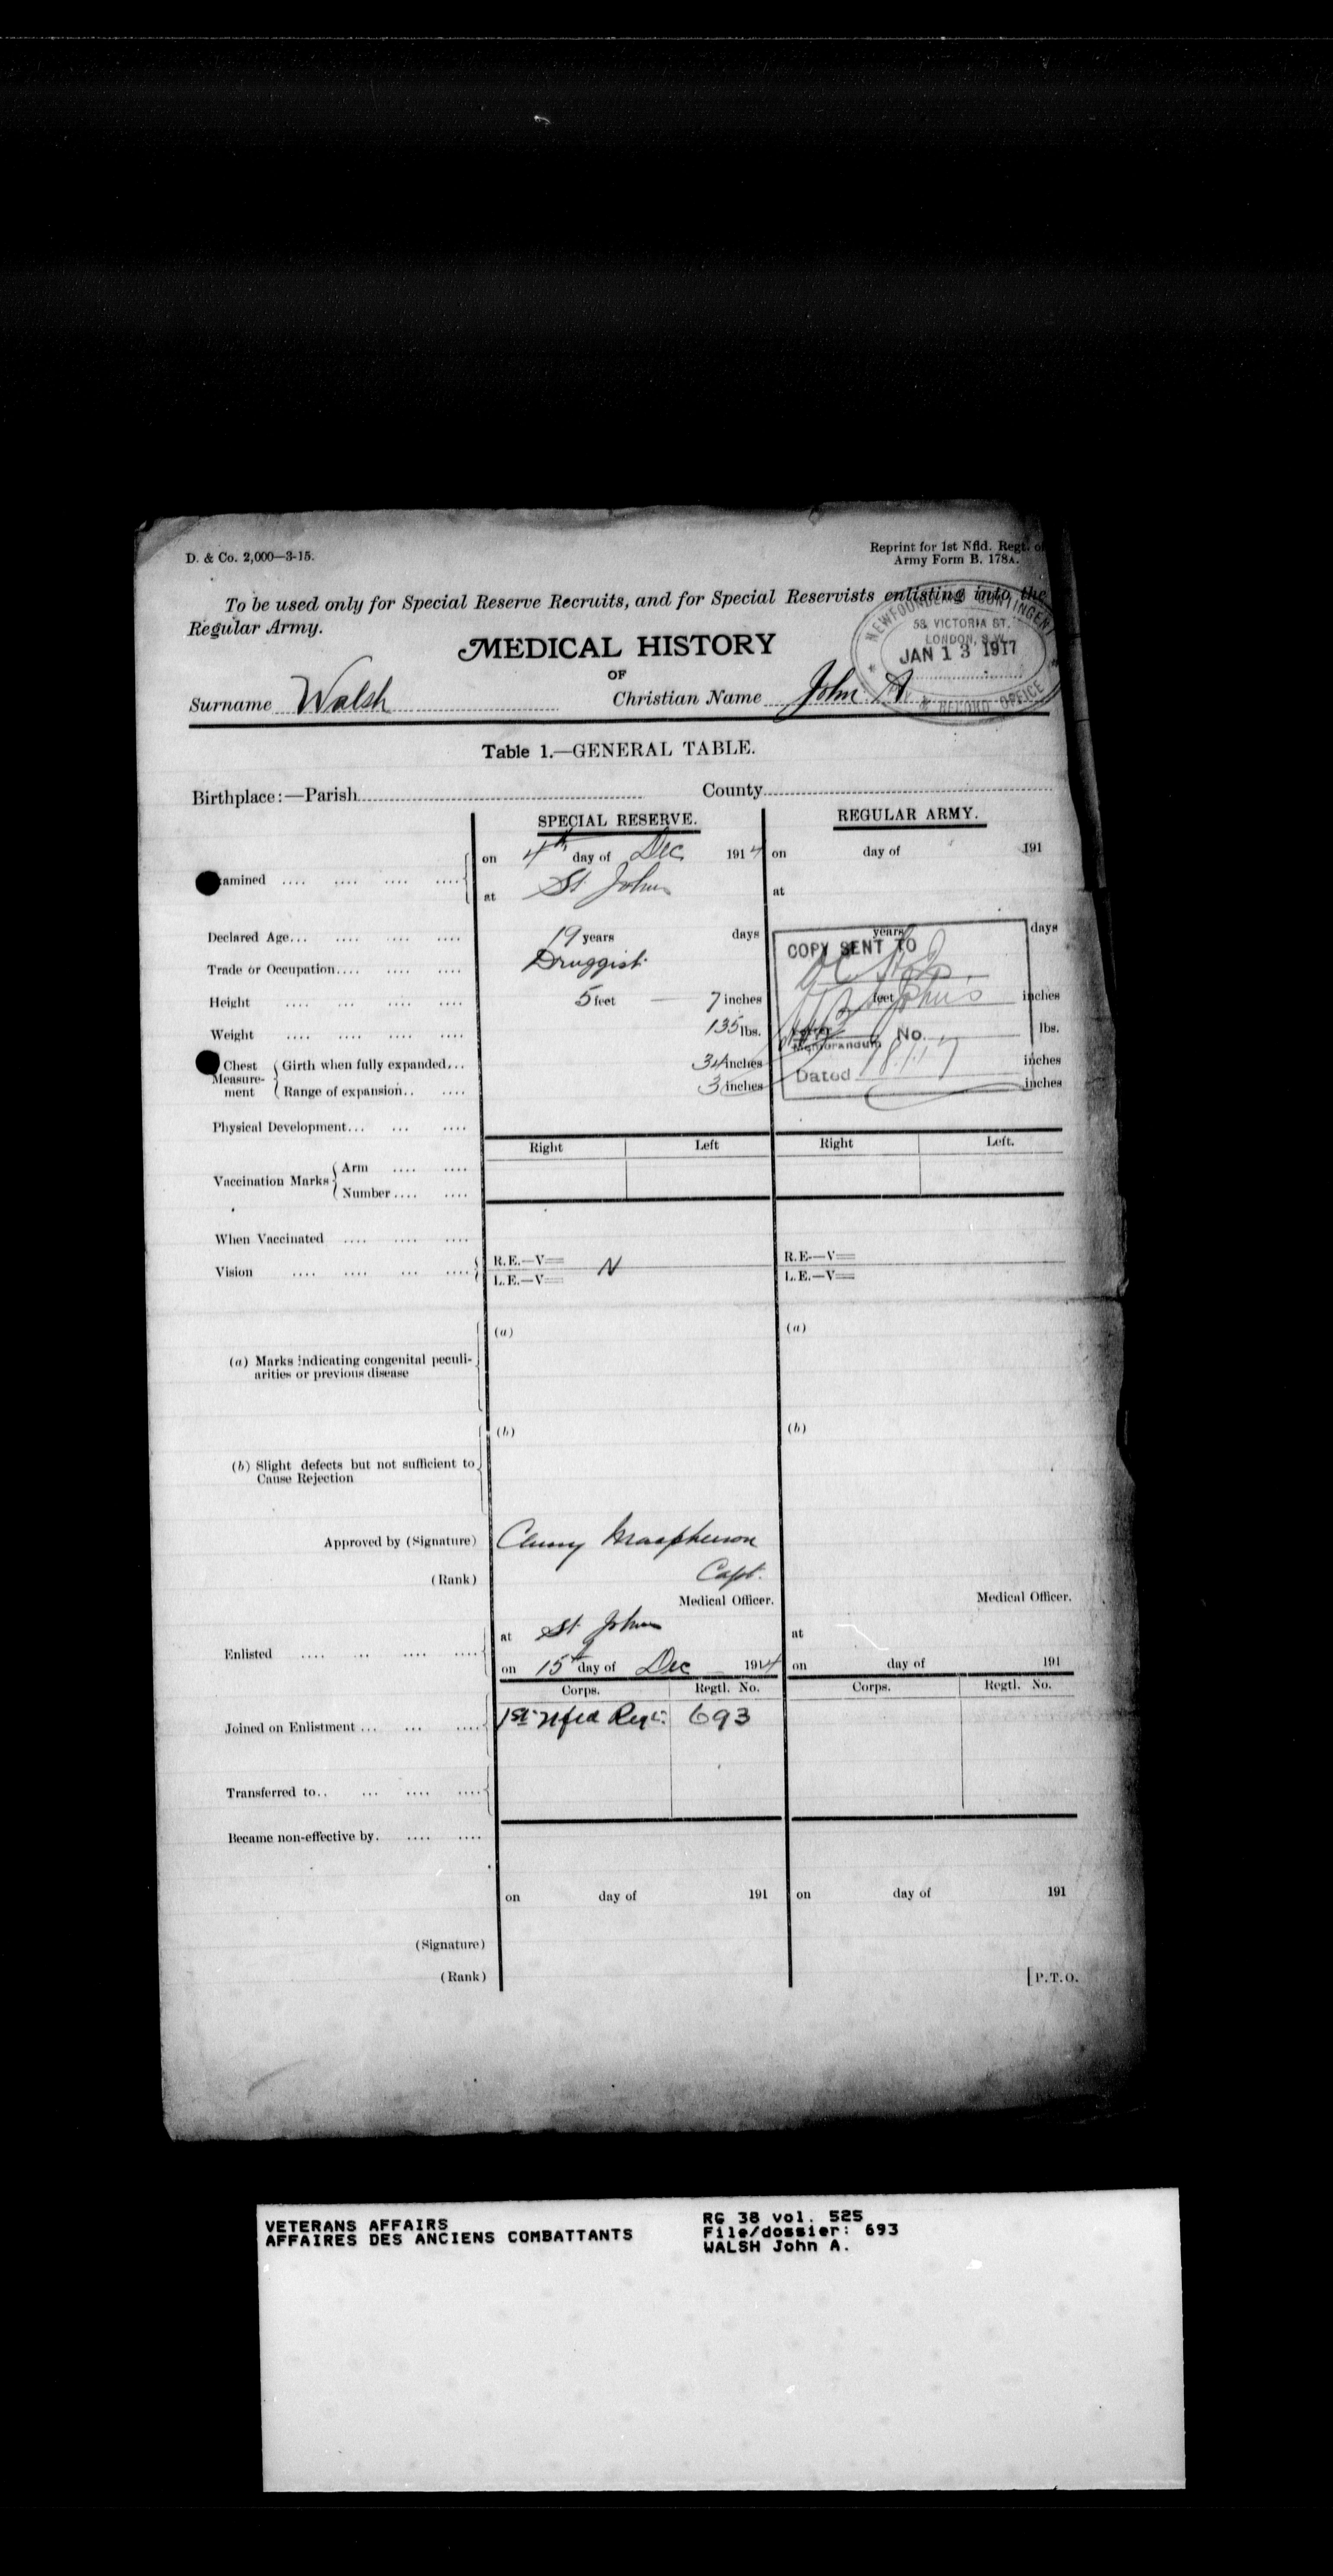 D. & Co. 2,000—3-15.
Reprint for 1st Nfld. Regt. of
Army Form B. 178A.
To be used only for Special Reserve Recruits, and for Special Reservists enlisting into the
Regular Army.
NEWFOUNDLAND CONTINGENT
58 VICTORIA ST.
LONDON, S.W.
JAN 13 1917
& RECORD OFFICE
MEDICAL HISTORY
OF
Surname Walsh Christian Name John A
Table 1.—GENERAL TABLE.
Birthplace:—Parish County
SPECIAL RESERVE. REGULAR ARMY.
on 4th day of Dec 1914 on day of 191
amined
at St Johns at
Declared Age 19 years days years days
Trade or Occupation Druggist
Height 5 feet — 7 inches feet inches
Weight 135 lbs. lbs.
Chest Measurement Girth when fully expanded 34 inches inches
Range of expansion 3 inches inches
COPY SENT TO
St John's
Memorandum No.
Dated 18/1/17
Physical Development
Right Left Right Left.
Vaccination Marks Arm
Number
When Vaccinated
Vision R.E.—V= N R.E.—V=
L.E.—V= L.E.—V=
(a) (a)
(a) Marks indicating congenital peculi-
arities or previous disease
(b) (b)
(b) Slight defects but not sufficient to
Cause Rejection
Approved by (Signature) Cluny Macpherson
(Rank) Capt.
Medical Officer. Medical Officer.
at St Johns at
Enlisted
on 15th day of Dec 1914 on day of 191
Corps. Regtl. No. Corps. Regtl. No.
Joined on Enlistment 1st Nfld Regt. 693
Transferred to
Became non-effective by
on day of 191 on day of 191
(Signature)
(Rank)
[P.T.O.
VETERANS AFFAIRS RG 38 vol. 525
AFFAIRES DES ANCIENS COMBATTANTS File/dossier: 693
WALSH John A.